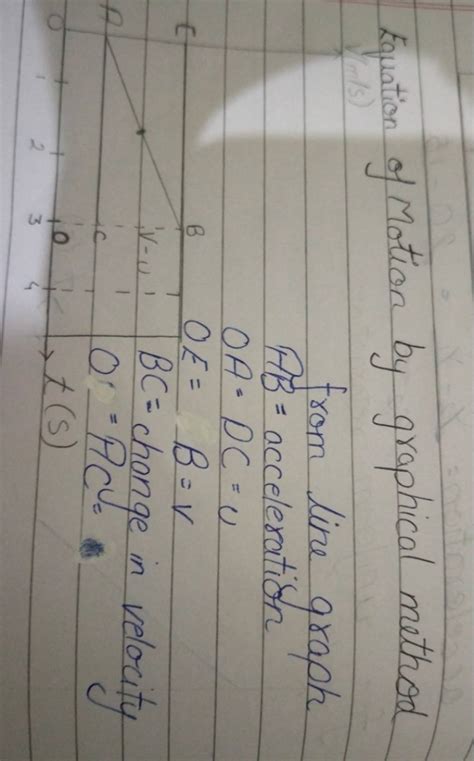 Equation of Motion by graphical method
V(m/s)
from line graph
AB = acceleration
OA = DC = U
OE = B = V
BC = change in velocity
O = AC =
E
B
A
V-U
C
O
1
2
3
D
4
t(s)